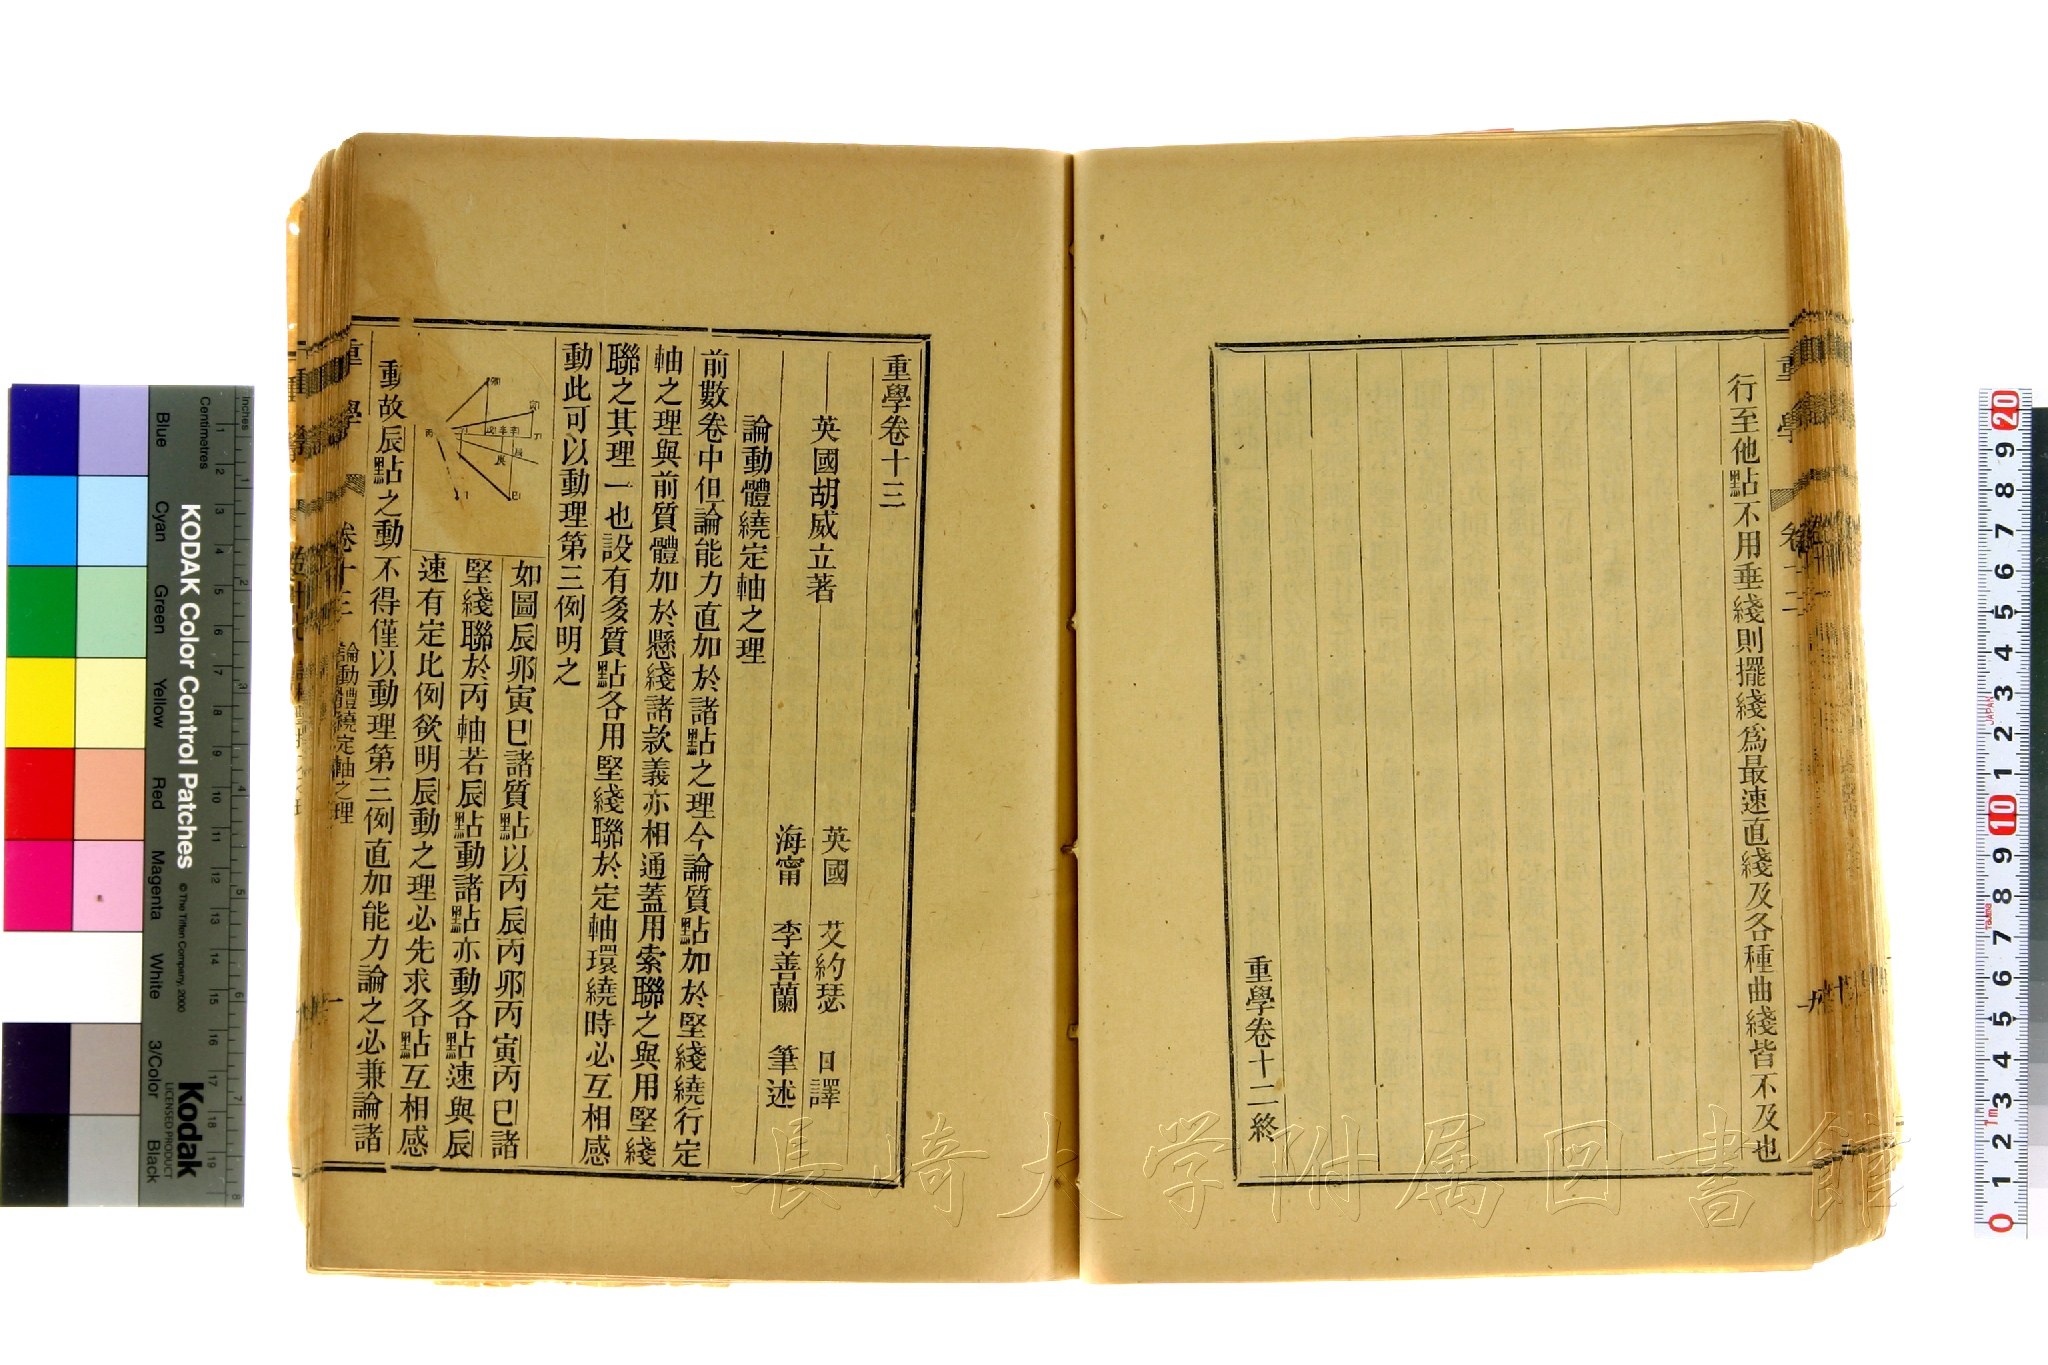 行至他點不用垂綫則擺綫爲最速直綫及各種曲綫皆不及也
重學卷十二終
重學卷十三
英國胡威立著
英國 艾約瑟 口譯
海甯 李善蘭 筆述
論動體繞定軸之理
前數卷中但論能力直加於諸點之理今論質點加於堅綫繞行定
軸之理與前質體加於懸綫諸款義亦相通蓋用索聯之與用堅綫
聯之其理一也設有多質點各用堅綫聯於定軸環繞時必互相感
動此可以動理第三例明之
如圖辰卯寅巳諸質點以丙辰丙卯丙寅丙巳諸
堅綫聯於丙軸若辰點動諸點亦動各點速與辰
速有定比例欲明辰動之理必先求各點互相感
動故辰點之動不得僅以動理第三例直加能力論之必兼論諸
重學 卷十三 論動體繞定軸之理 一
長崎大学附属図書館
KODAK Color Control Patches
© The Tiffen Company, 2000
Kodak
LICENSED PRODUCT
Inches
Centimetres
Blue
Cyan
Green
Yellow
Red
Magenta
White
3/Color
Black
JAPAN
Tajima
7m